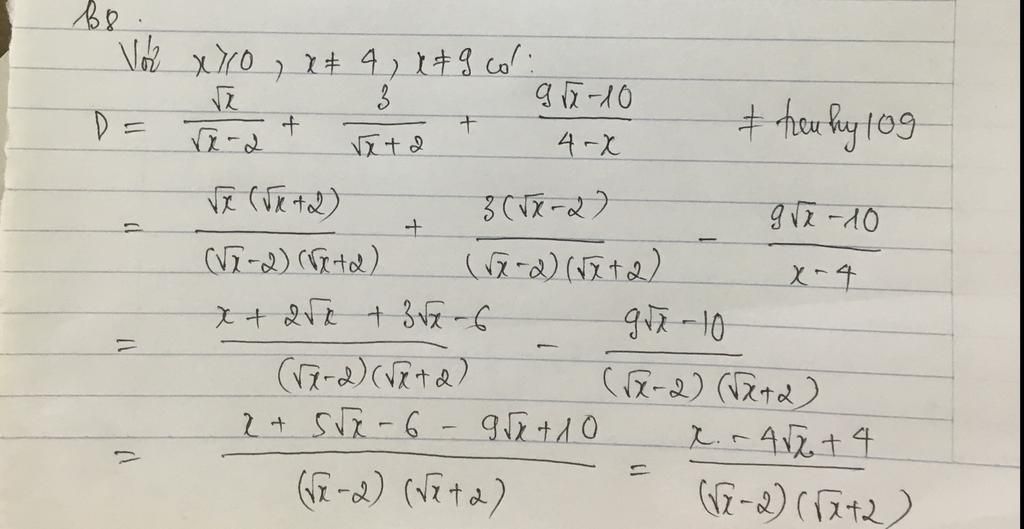 B8.
Với x ≥ 0, x ≠ 4, x ≠ 9 có:
D = √x/(√x-2) + 3/(√x+2) + (9√x-10)/(4-x) ≠ trenhy109
= √x(√x+2)/((√x-2)(√x+2)) + 3(√x-2)/((√x-2)(√x+2)) - (9√x-10)/(x-4)
= (x + 2√x + 3√x - 6)/((√x-2)(√x+2)) - (9√x-10)/((√x-2)(√x+2))
= (x + 5√x - 6 - 9√x + 10)/((√x-2)(√x+2)) = (x - 4√x + 4)/((√x-2)(√x+2))